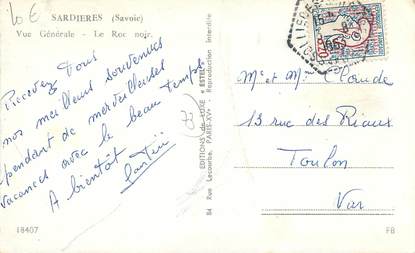 10 €
SARDIERES (Savoie)
Vue Générale - Le Roc noir.
Recevez tous
nos meilleurs souvenirs
pendant de merveilleuses
vacances avec le beau temps
A bientôt
73
EDITIONS de LUXE « ESTEL »
84 Rue Lecourbe, PARIS-XV - Reproduction interdite
1963
Mr et Mme Claude
13 rue des Riaux
Toulon
Var
18407
FB